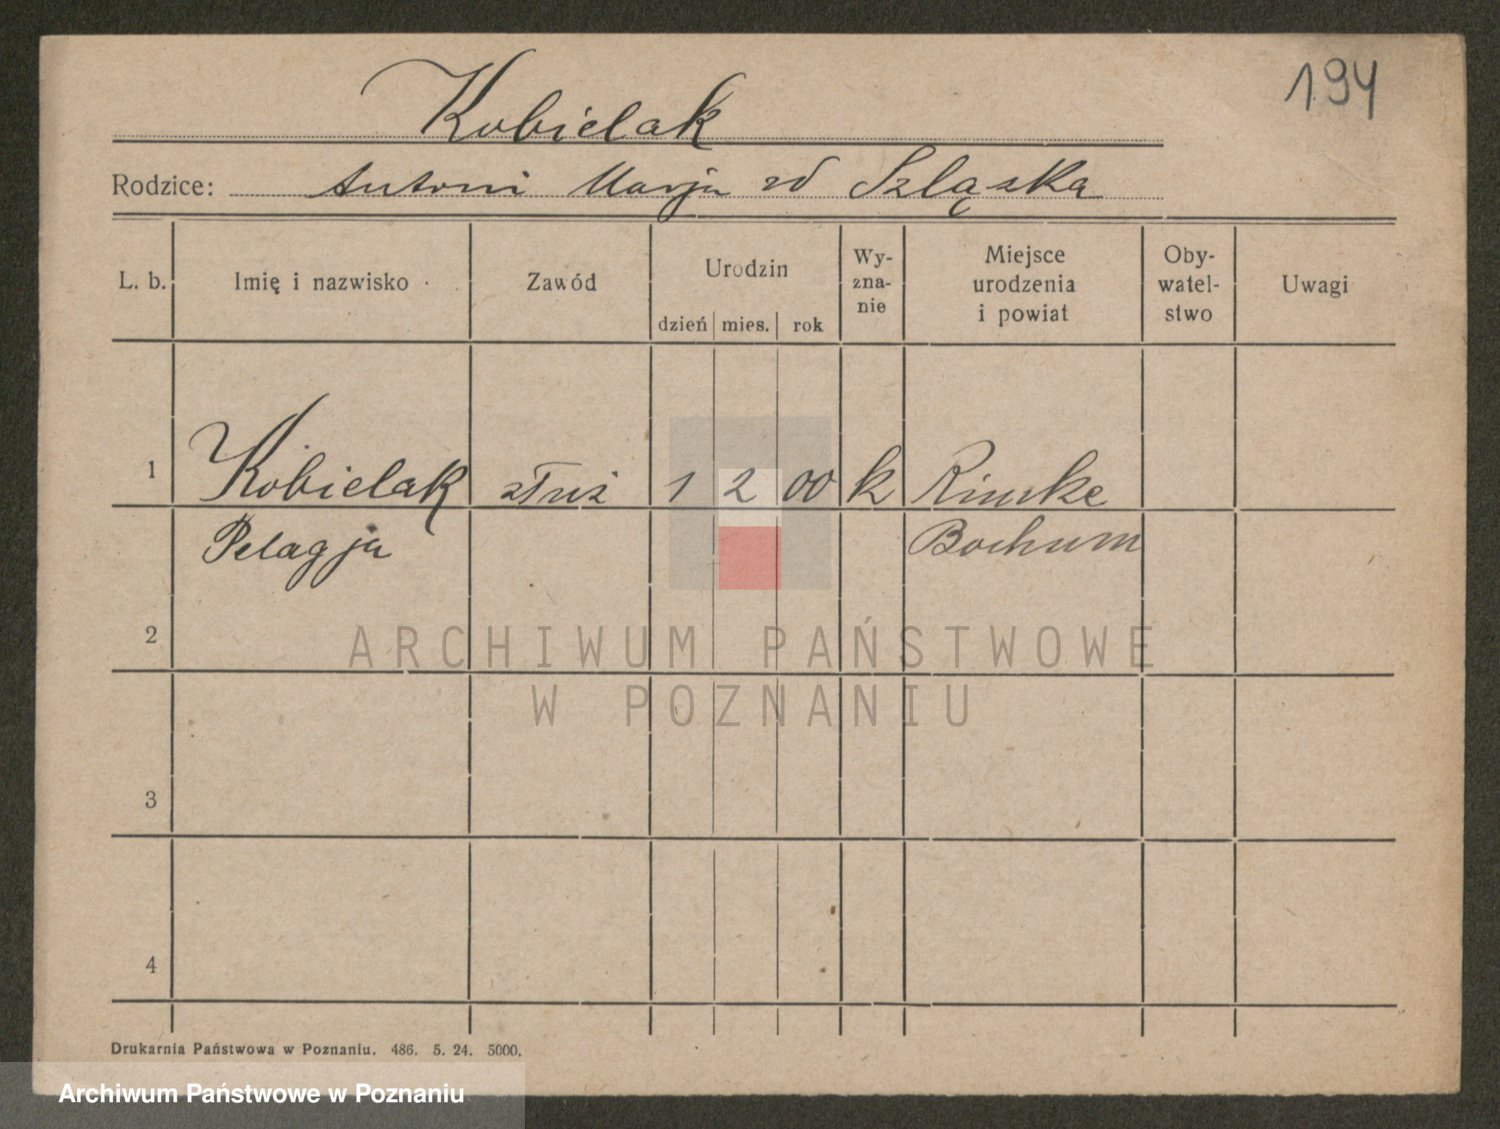 194
Kobielak
Rodzice: Antoni Marja zd Szląska
L. b. Imię i nazwisko Zawód Urodzin dzień mies. rok Wy-zna-nie Miejsce urodzenia i powiat Oby-watel-stwo Uwagi
1 Kobielak służ 1 2 00 k Riemke
Pelagja Bochum
2
ARCHIWUM PAŃSTWOWE
W POZNANIU
3
4
Drukarnia Państwowa w Poznaniu. 486. 5. 24. 5000.
Archiwum Państwowe w Poznaniu